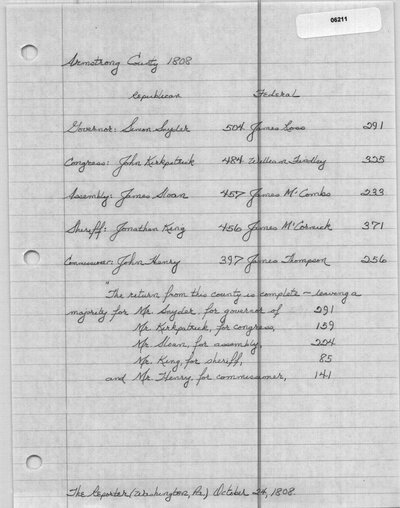 06211
Armstrong County 1808
Republican Federal
Governor: Simon Snyder 504 James Ross 291
Congress: John Kirkpatrick 484 William Findley 325
Assembly: James Sloan 457 James McCombs 233
Sheriff: Jonathan King 456 James McCormick 371
Commissioner: John Henry 397 James Thompson 256
"The return from this county is complete – leaving a
majority for Mr. Snyder, for governor of 291
Mr. Kirkpatrick, for congress, 159
Mr. Sloan, for assembly, 224
Mr. King, for sheriff, 85
and Mr. Henry for commissioner, 141
The Reporter (Washington, Pa.) October 24, 1808.